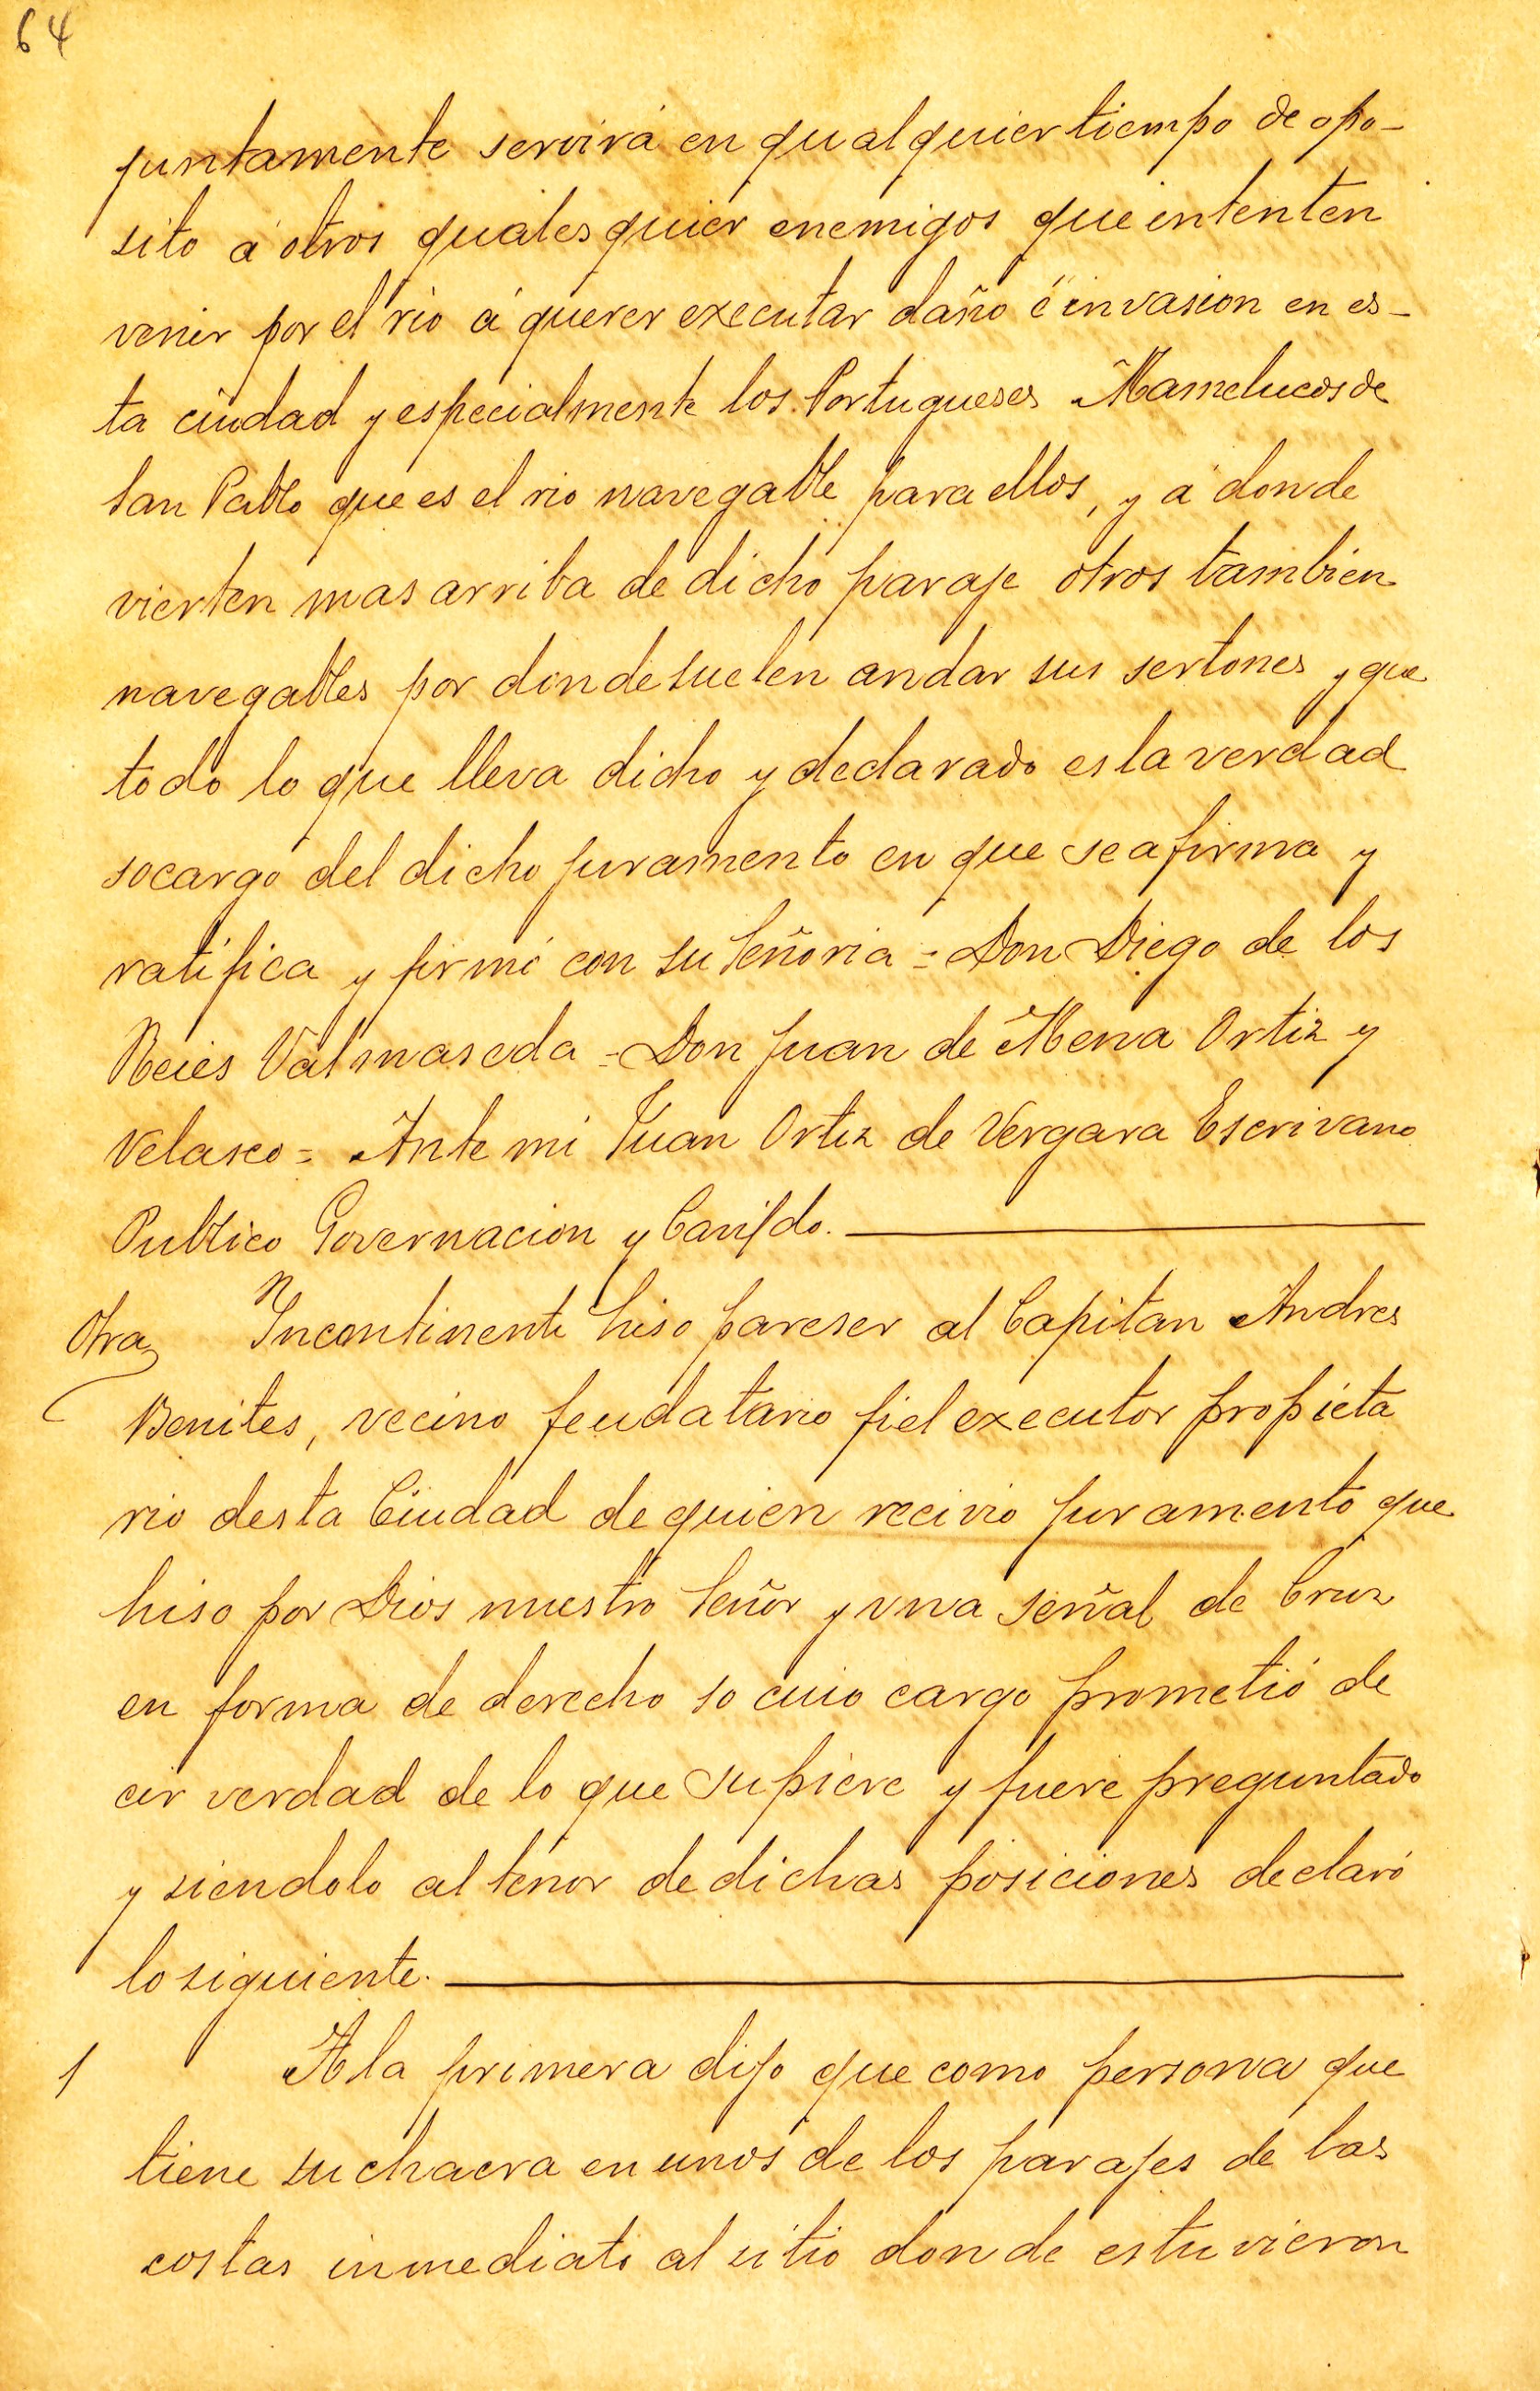 64
juntamente servirá en qualquier tiempo de opo-
sito á otros quales quier enemigos que intenten
venir por el rio á querer executar daño é invasion en es-
ta ciudad y especialmente los Portugueses Mamelucos de
San Pablo que es el rio navegable para ellos, y á donde
vierten mas arriba de dicho paraje otros tambien
navegables por donde suelen andar sus sertones y que
todo lo que lleva dicho y declarado es la verdad
socargo del dicho juramento en que se afirma y
ratifica y firmó con su Señoria = Don Diego de los
Reies Valmaseda = Don Juan de Mena Ortiz y
Velasco = Ante mi Juan Ortiz de Vergara Escrivano
Publico Governacion y Cavildo.
Otra Yncontinenti hiso pareser al Capitan Andres
Benites, vecino feudatario fiel executor propieta
rio desta Ciudad de quien recivio juramento que
hiso por Dios nuestro Señor y una señal de Cruz
en forma de derecho so cuio cargo prometió de
cir verdad de lo que supiere y fuere preguntado
y siendolo al tenor de dichas posiciones declaró
lo siguiente.
1 A la primera dijo que como persona que
tiene su chacra en unos de los parajes de las
costas inmediato al sitio donde estuvieron